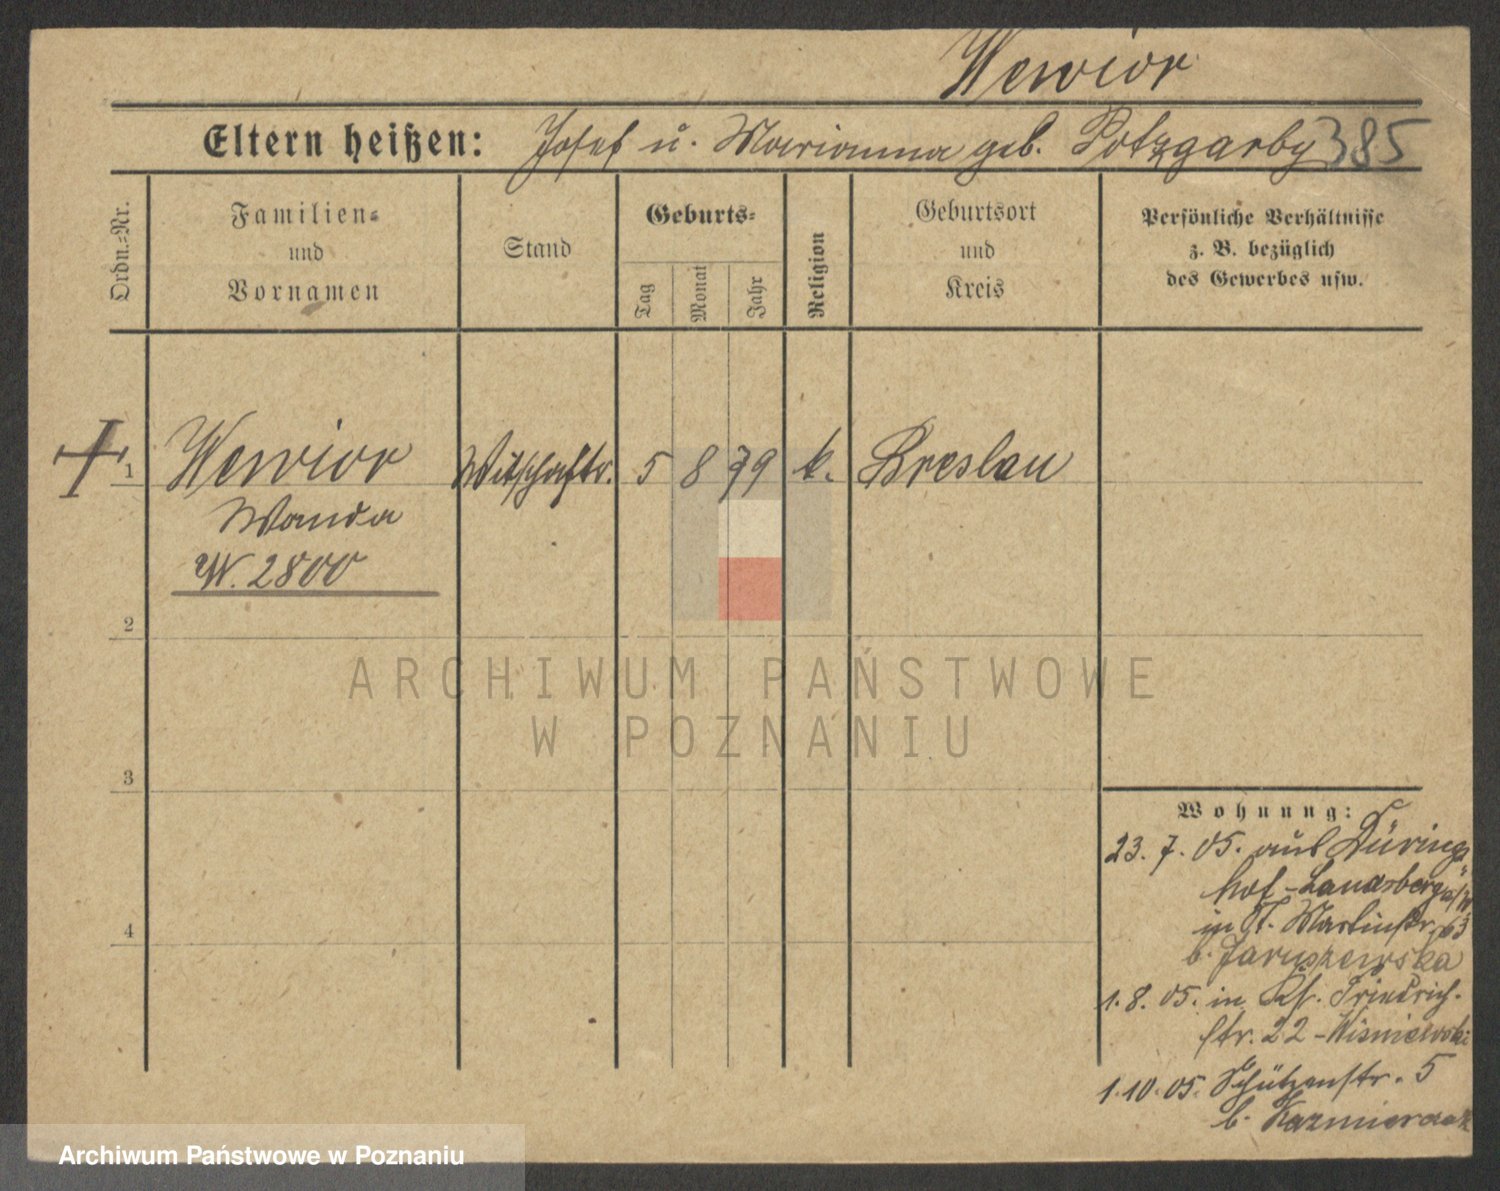 Wewior
Eltern heißen: Josef u. Marianna geb. Potzgarby 385
Ordn.=Nr.
Familien=
und
Vornamen
Stand
Geburts=
Tag
Monat
Jahr
Religion
Geburtsort
und
Kreis
Persönliche Verhältnisse
z. B. bezüglich
des Gewerbes usw.
1 Wewior Witschaftr. 5 8 79 k. Breslau
Wanda
W. 2800
2
ARCHIWUM PAŃSTWOWE
W POZNANIU
3
4
Wohnung:
23. 7. 05. aus Dürings
hof - Landsberg a/W
in St. Martinstr. 63
b. Jaruszewska
1. 8. 05. in Ks. Friedrich-
str. 22 - Wisniewski
1. 10. 05. Schützenstr. 5
b. Kazmierczak
Archiwum Państwowe w Poznaniu